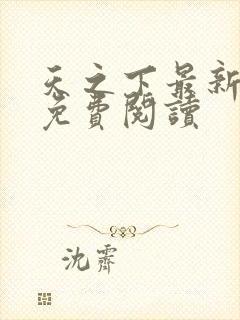 天之下最新
免費閱讀
沈霽